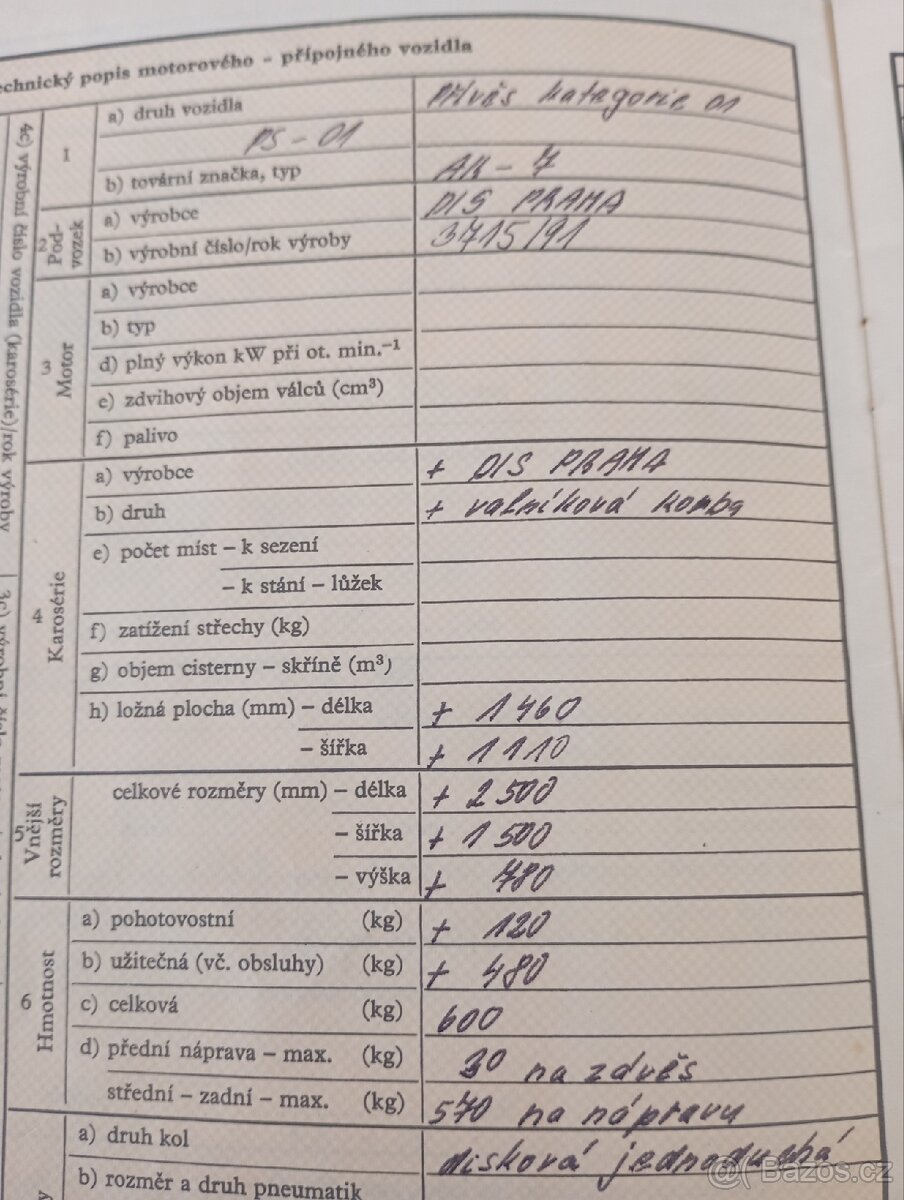 echnický popis motorového – přípojného vozidla
4c) výrobní číslo vozidla (karosérie)/rok výroby
1
a) druh vozidla
Přívěs katagorie 01
PS – 01
b) tovární značka, typ
AK – 7
2 Pod-vozek
a) výrobce
DIS PRAHA
b) výrobní číslo/rok výroby
3715/91
3 Motor
a) výrobce
b) typ
d) plný výkon kW při ot. min.⁻¹
e) zdvihový objem válců (cm³)
f) palivo
4 Karosérie
a) výrobce
+ DIS PRAHA
b) druh
+ valníková komba
e) počet míst – k sezení
– k stání – lůžek
f) zatížení střechy (kg)
g) objem cisterny – skříně (m³)
h) ložná plocha (mm) – délka
+ 1 460
– šířka
+ 1 110
5 Vnější rozměry
celkové rozměry (mm) – délka
+ 2 500
– šířka
+ 1 500
– výška
+ 780
6 Hmotnost
a) pohotovostní (kg)
+ 120
b) užitečná (vč. obsluhy) (kg)
+ 480
c) celková (kg)
600
d) přední náprava – max. (kg)
30 na zdvěs
střední – zadní – max. (kg)
570 na nápravu
a) druh kol
disková jednoduchá
b) rozměr a druh pneumatik
@Bazoš.cz